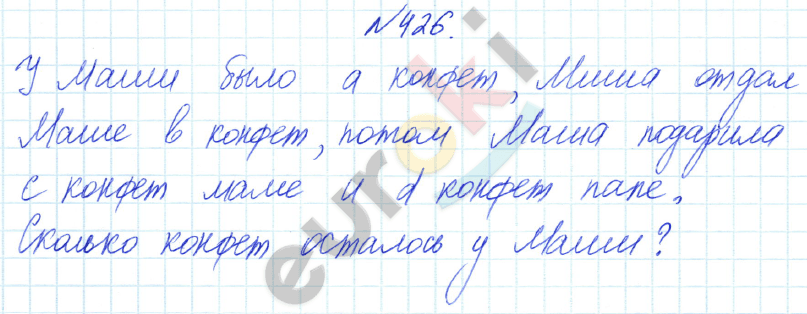 №426.
У Маши было a конфет, Миша отдал
Маше b конфет, потом Маша подарила
c конфет маме и d конфет папе.
Сколько конфет осталось у Маши?
euroki